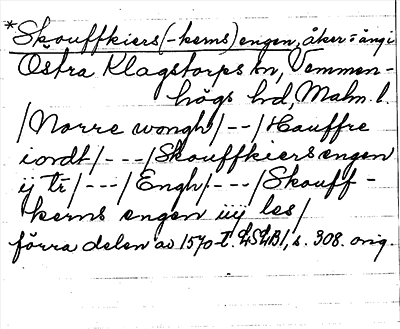 *Skouffkiers(-kerns)engen, åker- o ängi
Östra Klagstorps sn, Vemmen-
högs hd, Malm. l.
/Norre wongh/--/Hauffre
iordt/---/Skouffkiers engen
ij tr/---/Engh/---/Skouff-
kerns engen iiij les/
förra delen av 1570-t. LSLB1, s. 308. orig.